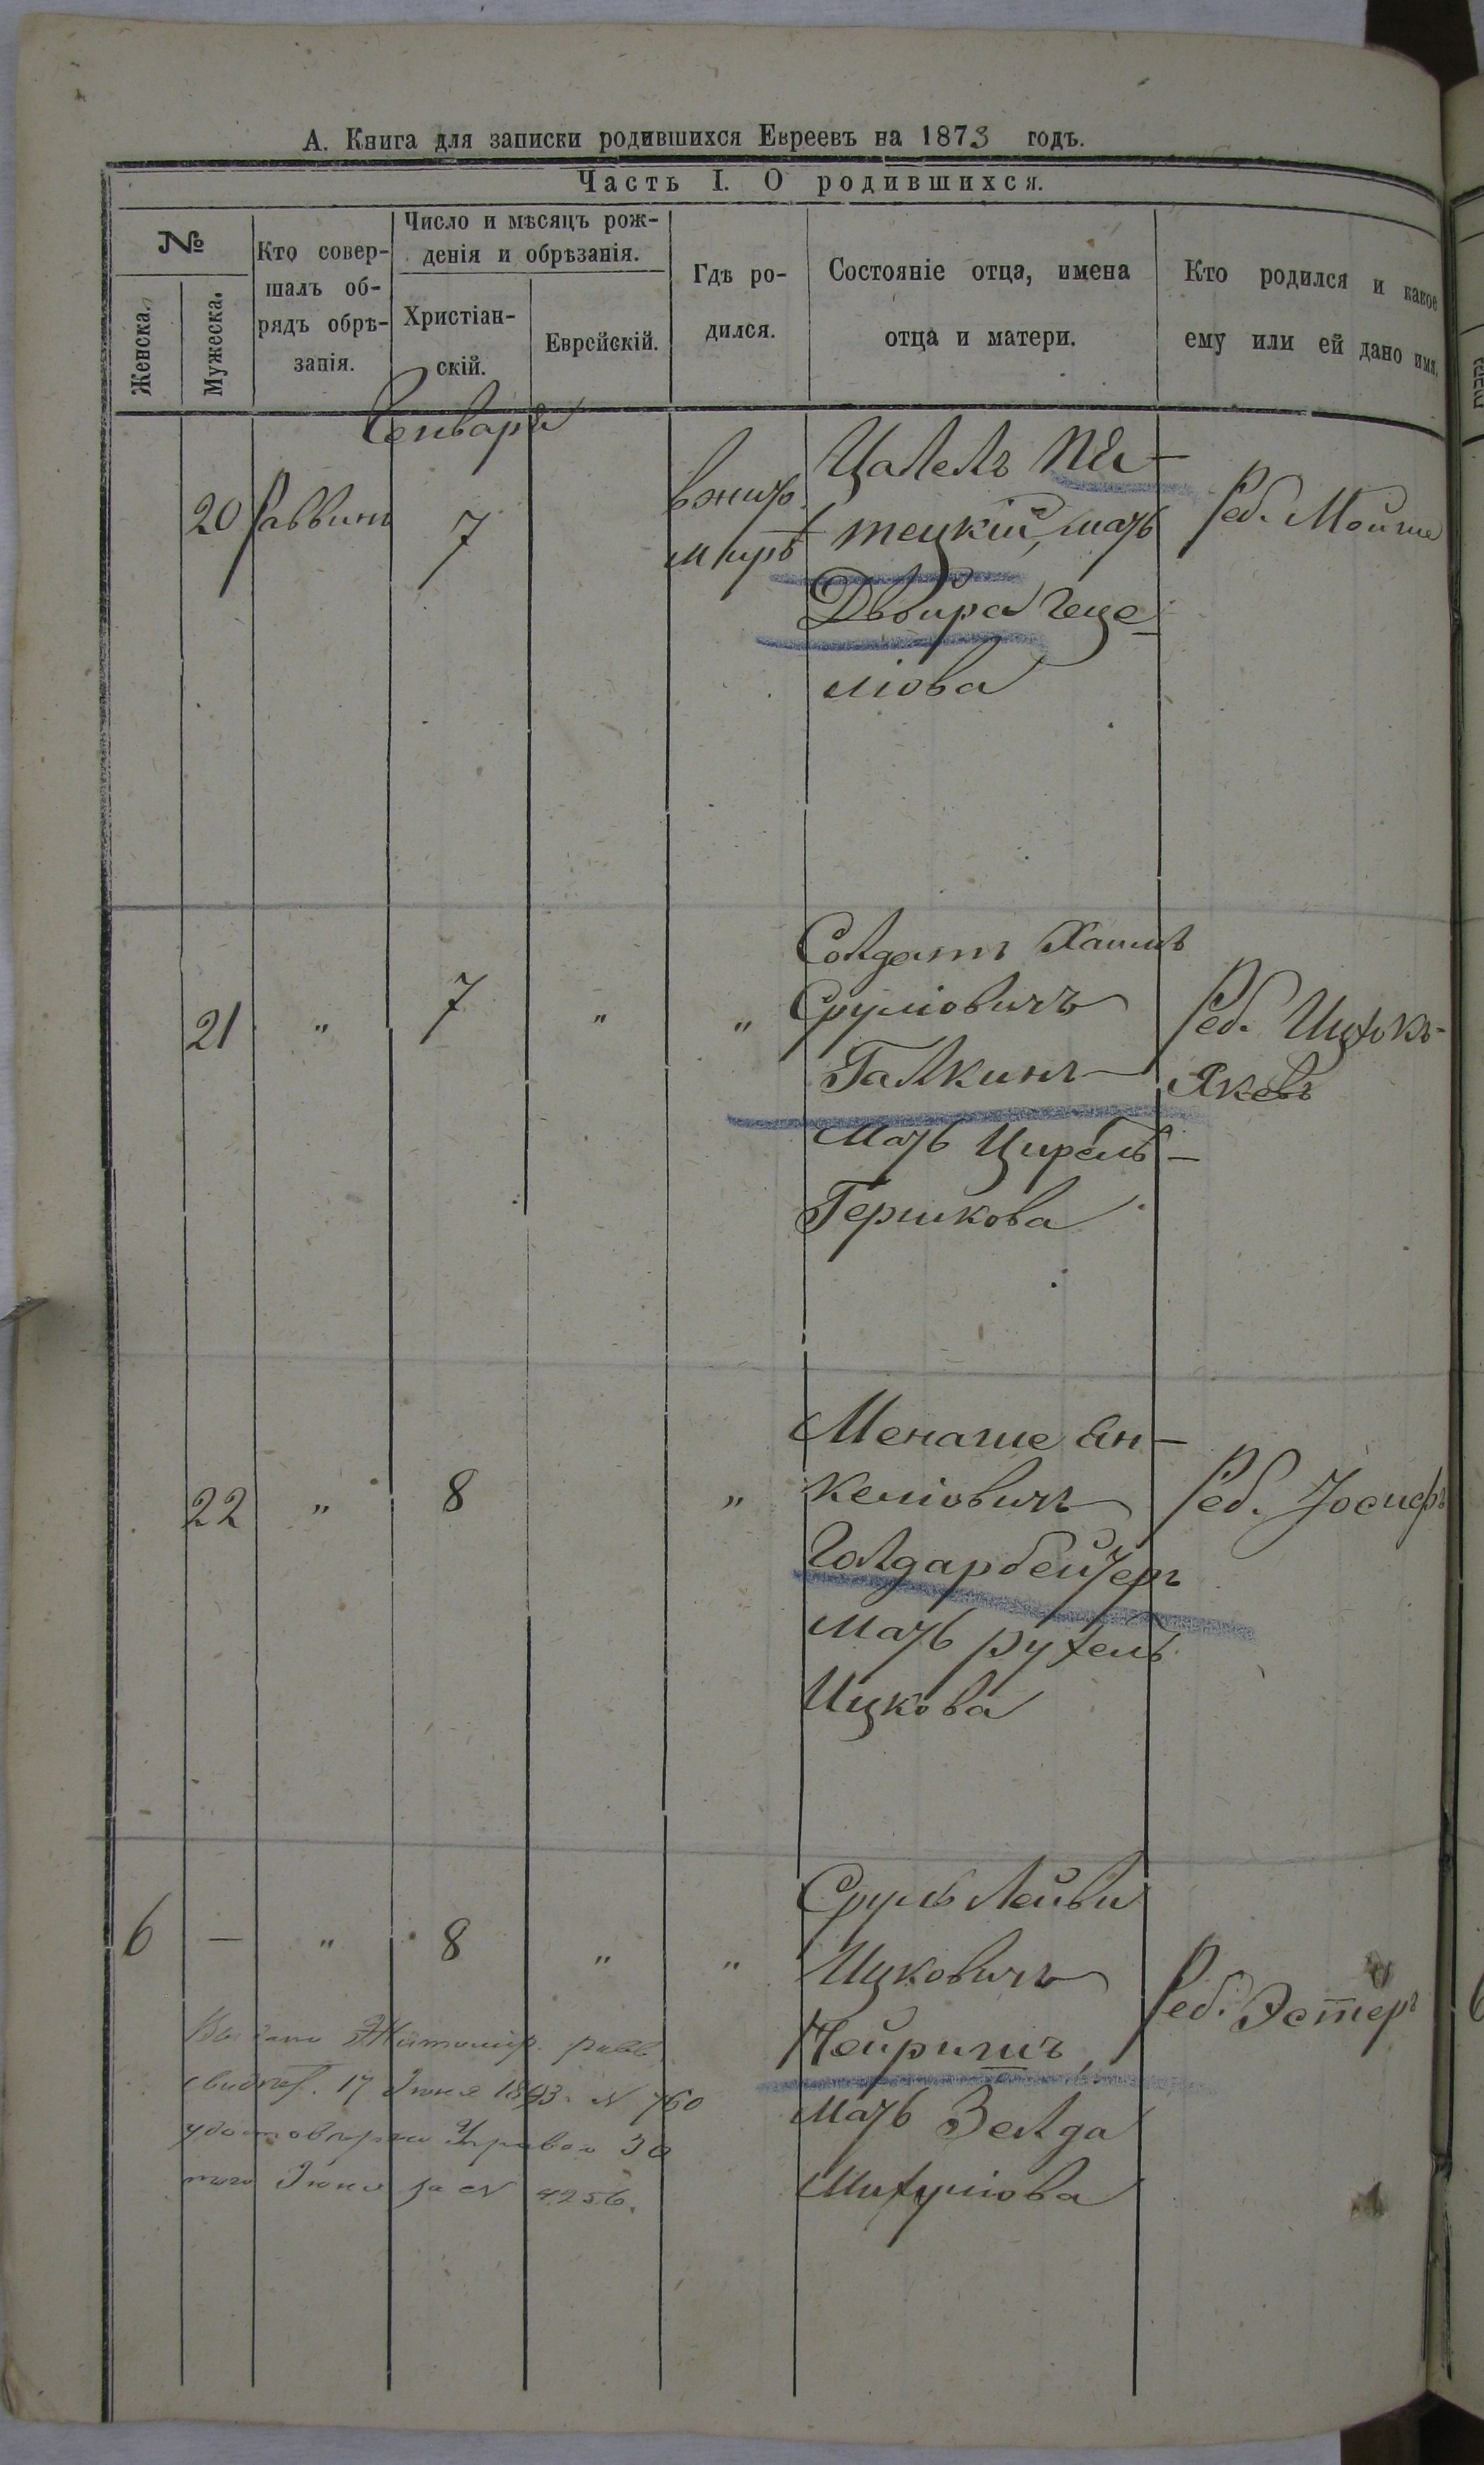 А. Книга для записки родившихся Евреевъ на 1873 годъ.
Часть I. О родившихся.
№
Женска.
Мужеска.
Кто совер-
шалъ об-
рядъ обрѣ-
занія.
Число и мѣсяцъ рож-
денія и обрѣзанія.
Христіан-
скій.
Еврейскій.
Гдѣ ро-
дился.
Состояніе отца, имена
отца и матери.
Кто родился и какое
ему или ей дано имя.
Генваря
20 Раввинъ 7
Цалелъ
тецкій, мать
Двойра Геце
ліова
Реб. Мойше
21 " 7 " "
Солдатъ Хаимъ
Сруліовичъ
Галкинъ
мать Цирель
Гершкова
Реб. Ицхокъ-
Яковъ
22 " 8 "
Менаше Ян-
келіовичъ
Голдарбейтеръ
мать Рухель
Ицкова
Реб. Іосифъ
6 — " 8 " "
Сруль Лейви
Ицковичъ
мать Зелда
Михуліова
Реб. Эстеръ
Выдано Житомир. равв.
свидѣт. 17 Іюня 1893. N 760
удостоверено Управою 30
того Іюня за N 4256.